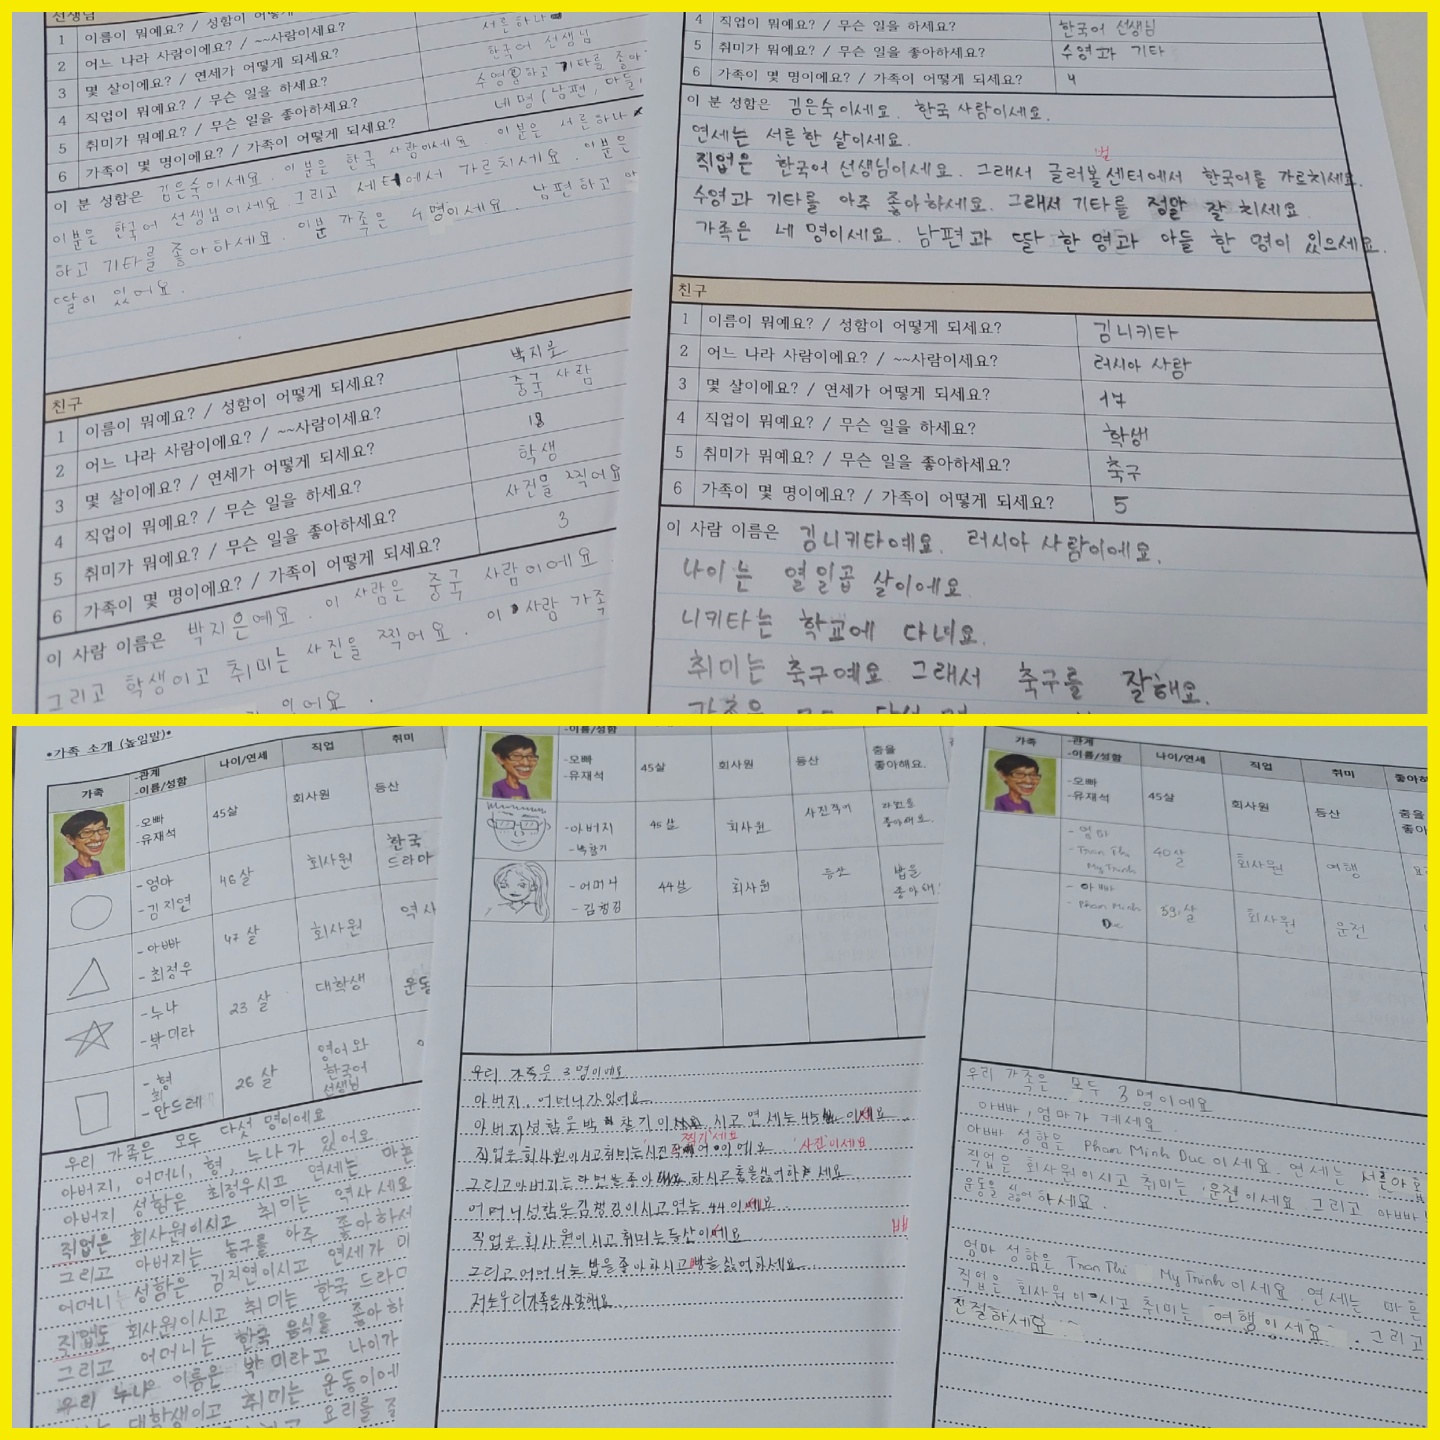 선생님
1 이름이 뭐예요? / 성함이 어떻게
2 어느 나라 사람이에요? / ~~사람이세요?
3 몇 살이에요? / 연세가 어떻게 되세요? 서른 하나
4 직업이 뭐예요? / 무슨 일을 하세요? 한국어 선생님
5 취미가 뭐예요? / 무슨 일을 좋아하세요? 수영하고 기타를 좋아
6 가족이 몇 명이에요? / 가족이 어떻게 되세요? 네 명 (남편, 아들,
이 분 성함은 김은숙이세요. 이분은 한국 사람이세요. 이분은 서른 하나
이분은 한국어 선생님이세요 그리고 센터에서 가르치세요. 이분은
하고 기타를 좋아하세요. 이분 가족은 4명이세요. 남편하고 아
딸이 있어요.
친구
1 이름이 뭐예요? / 성함이 어떻게 되세요? 박지은
2 어느 나라 사람이에요? / ~~사람이세요? 중국 사람
3 몇 살이에요? / 연세가 어떻게 되세요? 18
4 직업이 뭐예요? / 무슨 일을 하세요? 학생
5 취미가 뭐예요? / 무슨 일을 좋아하세요? 사진을 찍어요
6 가족이 몇 명이에요? / 가족이 어떻게 되세요? 3
이 사람 이름은 박지은예요. 이 사람은 중국 사람이에요
그리고 학생이고 취미는 사진을 찍어요. 이 사람 가족
있어요.
4 직업이 뭐예요? / 무슨 일을 하세요? 한국어 선생님
5 취미가 뭐예요? / 무슨 일을 좋아하세요? 수영과 기타
6 가족이 몇 명이에요? / 가족이 어떻게 되세요? 4
이 분 성함은 김은숙이세요. 한국 사람이세요.
연세는 서른 한 살이세요.
직업은 한국어 선생님이세요. 그래서 글러볼센터에서 한국어를 가르치세요.
벌
수영과 기타를 아주 좋아하세요. 그래서 기타를 정말 잘 치세요
가족은 네 명이세요. 남편과 딸 한 명과 아들 한 명이 있으세요.
친구
1 이름이 뭐예요? / 성함이 어떻게 되세요? 김니키타
2 어느 나라 사람이에요? / ~~사람이세요? 러시아 사람
3 몇 살이에요? / 연세가 어떻게 되세요? 17
4 직업이 뭐예요? / 무슨 일을 하세요? 학생
5 취미가 뭐예요? / 무슨 일을 좋아하세요? 축구
6 가족이 몇 명이에요? / 가족이 어떻게 되세요? 5
이 사람 이름은 김니키타예요. 러시아 사람이에요.
나이는 열일곱 살이에요.
니키타는 학교에 다녀요.
취미는 축구예요 그래서 축구를 잘해요.
*가족 소개 (높임말)*
가족 -관계 -이름/성함 나이/연세 직업 취미
-오빠 -유재석 45살 회사원 등산
-엄마 -김지연 46살 회사원 한국 드라마
-아빠 -최정우 47살 회사원 역사
-누나 -박미라 23살 대학생 운동
-형 -최 안드레 26살 영어와 한국어 선생님
우리 가족은 모두 다섯 명이에요
아버지, 어머니, 형, 누나가 있어요
아버지 성함은 최정우시고 연세는 마흔
직업은 회사원이시고 취미는 역사세요
그리고 아버지는 농구를 아주 좋아하서
어머니 성함은 김지연이시고 연세가 마
직업도 회사원이시고 취미는 한국 드라마
그리고 어머니는 한국 음식을 좋아하
우리 누나 이름은 박미라고 나이가
대학생이고 취미는 운동이에
요리를
-이름/성함
-오빠 -유재석 45살 회사원 등산 춤을 좋아해요.
-아버지 -박창기 45살 회사원 사진찍어 라면을 좋아해요.
-어머니 -김행김 44살 회사원 등산 밥을 좋아해
우리 가족은 3명이에요
아버지, 어머니가있어요
아버지성함은박창기이 시고연세는45 이세요
찍기 세요
직업은회사원이시고취미는사진 어이에요 '사진'이세요
그리고아버지는라면을좋아 하시고춤을싫어하세요
어머니성함은김행김이시고연는 44이세요
직업은회사원이시고취미는등산이세요
그리고어머니는밥을좋아하시고빵을싫어하세요
저는우리가족을사랑해요
가족 -관계 -이름/성함 나이/연세 직업 취미 좋아하
-오빠 -유재석 45살 회사원 등산 춤을 좋아
-엄마 -Tran Thi My Trinh 40살 회사원 여행
-아빠 -Phan Minh Duc 39살 회사원 운전
우리 가족은 모두 3명이에요
아빠, 엄마가 계세요.
아빠 성함은 Phan Minh Duc이세요. 연세는 서른아홉
직업은 회사원이시고 취미는 운전이세요 그리고 아빠
운동을 싫어하세요.
엄마 성함은 Tran Thi My Trinh이세요 연세는 마흔
직업은 회사원이시고 취미는 여행이세요. 그리고
친절하세요